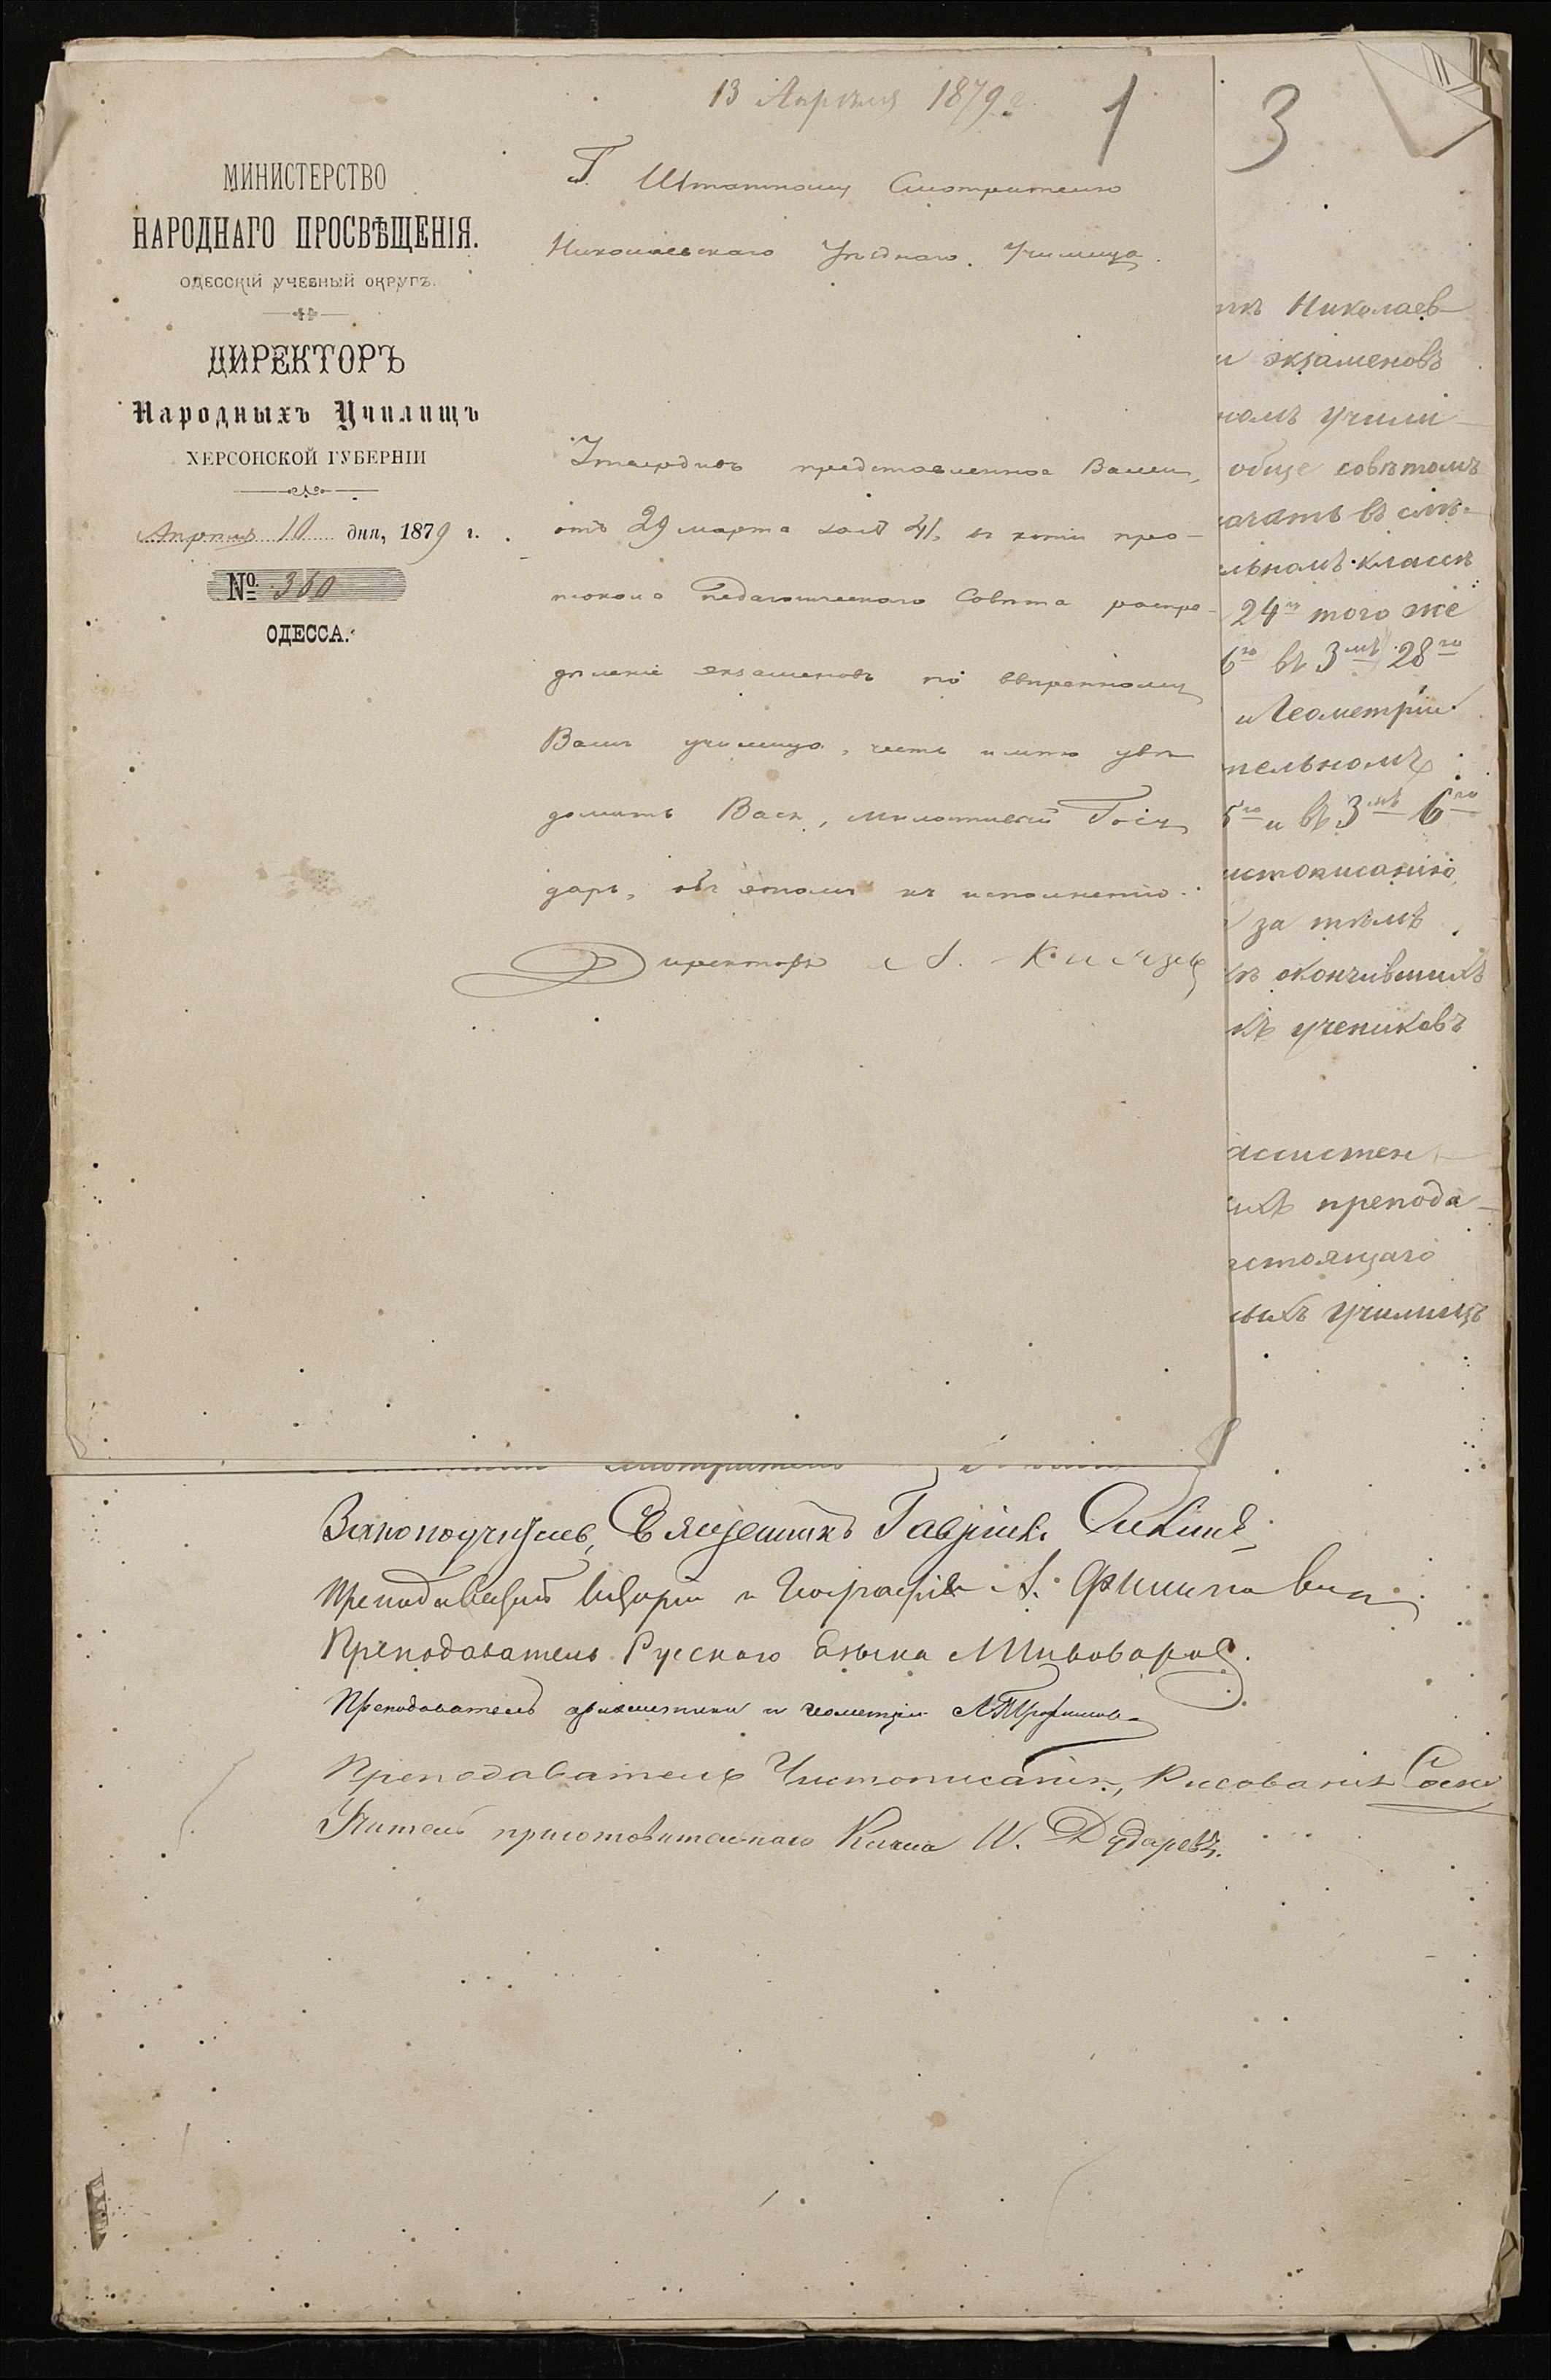 13 Апрѣля 1879 г.
1
3
МИНИСТЕРСТВО
НАРОДНАГО ПРОСВѢЩЕНІЯ.
ОДЕССКІЙ УЧЕБНЫЙ ОКРУГЪ.
ДИРЕКТОРЪ
Народныхъ Училищъ
ХЕРСОНСКОЙ ГУБЕРНІИ
Апрѣля 10 дня, 1879 г.
№ 360
ОДЕССА.
Г. Штатному Смотрителю
Николаевскаго Уѣзднаго Училища.
Утвердивъ представленное Вами,
отъ 29 марта за № 41, въ копіи про-
токола Педагогическаго Совѣта распре-
дѣленіе экзаменовъ по ввѣренному
Вамъ училищу, честь имѣю увѣ
домить Васъ, Милостивый Госу
дарь, объ этомъ къ исполненію.
Директоръ А.
Николаев-
и экзаменовъ
номъ учили-
обще совѣтомъ
льномъ классѣ
24го того же
6го въ 3мъ 28го
и Геометріи
тельномъ
5го и въ 3мъ 6го
истописанію
за тѣмъ
окончившихъ
учениковъ
ассистен-
ихъ препода-
стоящаго
ныхъ училищъ
Законоучитель, Священникъ Гавріилъ
Преподаватель Исторіи и Географіи А.
Преподаватель Русскаго языка Пивоваровъ.
Преподаватель ариѳметики и геометріи
Преподаватель Чистописанія, Рисованія
Учитель приготовительнаго Класса И. Дударевъ.